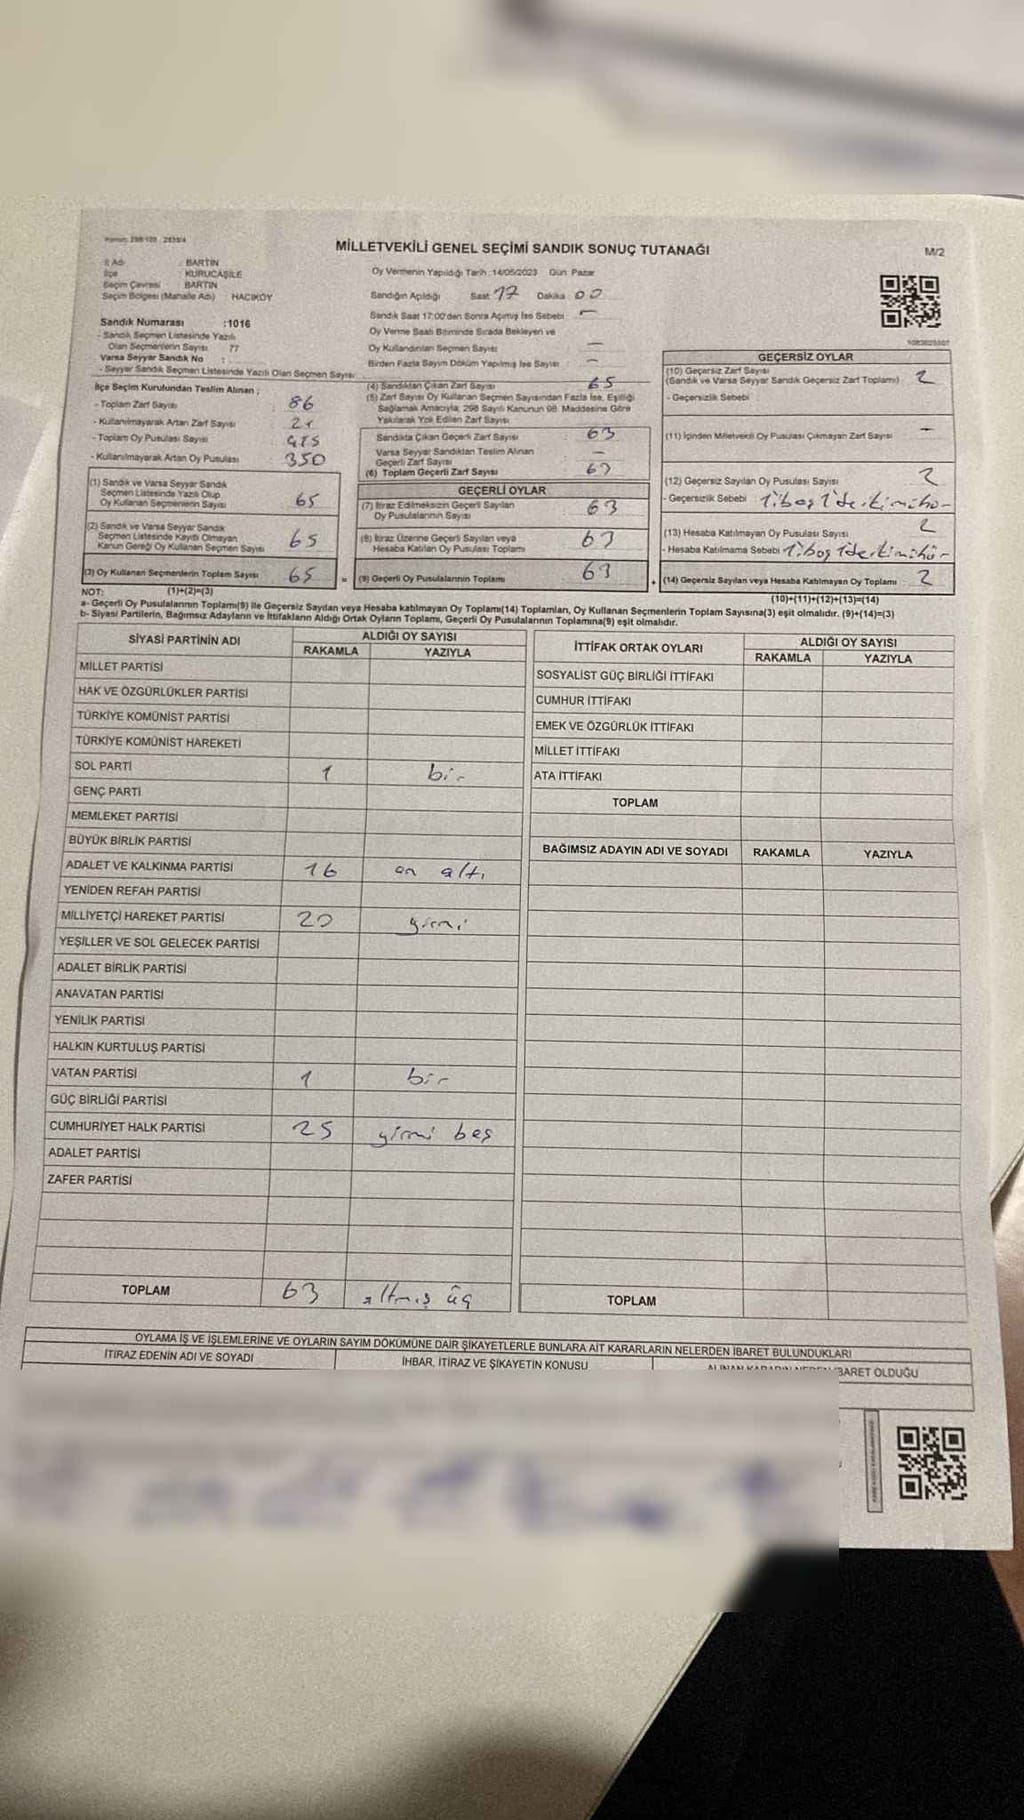 MİLLETVEKİLİ GENEL SEÇİMİ SANDIK SONUÇ TUTANAĞI
M/2
İl Adı : BARTIN
İlçe : KURUCAŞİLE
Seçim Çevresi : BARTIN
Seçim Bölgesi (Mahalle Adı) : HACIKÖY
Sandık Numarası :1016
- Sandık Seçmen Listesinde Yazılı
Olan Seçmenlerin Sayısı 77
Varsa Seyyar Sandık No :
- Seyyar Sandık Seçmen Listesinde Yazılı Olan Seçmen Sayısı :
Oy Vermenin Yapıldığı Tarih :14/05/2023 Gün: Pazar
Sandığın Açıldığı Saat 17 Dakika 00
Sandık Saat 17:00'den Sonra Açılmış İse Sebebi —
Oy Verme Saati Bitiminde Sırada Bekleyen ve
Oy Kullandırılan Seçmen Sayısı —
Birden Fazla Sayım Döküm Yapılmış İse Sayısı —
İlçe Seçim Kurulundan Teslim Alınan ;
- Toplam Zarf Sayısı 86
- Kullanılmayarak Artan Zarf Sayısı 21
- Toplam Oy Pusulası Sayısı 415
- Kullanılmayarak Artan Oy Pusulası 350
(1) Sandık ve Varsa Seyyar Sandık
Seçmen Listesinde Yazılı Olup
Oy Kullanan Seçmenlerin Sayısı 65
(2) Sandık ve Varsa Seyyar Sandık
Seçmen Listesinde Kayıtlı Olmayan
Kanun Gereği Oy Kullanan Seçmen Sayısı 65
(3) Oy Kullanan Seçmenlerin Toplam Sayısı 65 =
(4) Sandıktan Çıkan Zarf Sayısı 65
(5) Zarf Sayısı Oy Kullanan Seçmen Sayısından Fazla İse, Eşitliği
Sağlamak Amacıyla, 298 Sayılı Kanunun 98. Maddesine Göre
Yakılarak Yok Edilen Zarf Sayısı
Sandıkta Çıkan Geçerli Zarf Sayısı 63
Varsa Seyyar Sandıktan Teslim Alınan
Geçerli Zarf Sayısı —
(6) Toplam Geçerli Zarf Sayısı 63
GEÇERLİ OYLAR
(7) İtiraz Edilmeksizin Geçerli Sayılan
Oy Pusulalarının Sayısı 63
(8) İtiraz Üzerine Geçerli Sayılan veya
Hesaba Katılan Oy Pusulası Toplamı 63
(9) Geçerli Oy Pusulalarının Toplamı 63 +
GEÇERSİZ OYLAR
(10) Geçersiz Zarf Sayısı
(Sandık ve Varsa Seyyar Sandık Geçersiz Zarf Toplamı) 2
- Geçersizlik Sebebi
(11) İçinden Milletvekili Oy Pusulası Çıkmayan Zarf Sayısı —
(12) Geçersiz Sayılan Oy Pusulası Sayısı 2
- Geçersizlik Sebebi
(13) Hesaba Katılmayan Oy Pusulası Sayısı 2
- Hesaba Katılmama Sebebi
(14) Geçersiz Sayılan veya Hesaba Katılmayan Oy Toplamı 2
NOT: (1)+(2)=(3)
(10)+(11)+(12)+(13)=(14)
a- Geçerli Oy Pusulalarının Toplamı(9) ile Geçersiz Sayılan veya Hesaba katılmayan Oy Toplamı(14) Toplamları, Oy Kullanan Seçmenlerin Toplam Sayısına(3) eşit olmalıdır. (9)+(14)=(3)
b- Siyasi Partilerin, Bağımsız Adayların ve İttifakların Aldığı Ortak Oyların Toplamı, Geçerli Oy Pusulalarının Toplamına(9) eşit olmalıdır.
SİYASİ PARTİNİN ADI ALDIĞI OY SAYISI
RAKAMLA YAZIYLA
MİLLET PARTİSİ
HAK VE ÖZGÜRLÜKLER PARTİSİ
TÜRKİYE KOMÜNİST PARTİSİ
TÜRKİYE KOMÜNİST HAREKETİ
SOL PARTİ 1 bir
GENÇ PARTİ
MEMLEKET PARTİSİ
BÜYÜK BİRLİK PARTİSİ
ADALET VE KALKINMA PARTİSİ 16 on altı
YENİDEN REFAH PARTİSİ
MİLLİYETÇİ HAREKET PARTİSİ 20 yirmi
YEŞİLLER VE SOL GELECEK PARTİSİ
ADALET BİRLİK PARTİSİ
ANAVATAN PARTİSİ
YENİLİK PARTİSİ
HALKIN KURTULUŞ PARTİSİ
VATAN PARTİSİ 1 bir
GÜÇ BİRLİĞİ PARTİSİ
CUMHURİYET HALK PARTİSİ 25 yirmi beş
ADALET PARTİSİ
ZAFER PARTİSİ
TOPLAM 63 altmış üç
İTTİFAK ORTAK OYLARI ALDIĞI OY SAYISI
RAKAMLA YAZIYLA
SOSYALİST GÜÇ BİRLİĞİ İTTİFAKI
CUMHUR İTTİFAKI
EMEK VE ÖZGÜRLÜK İTTİFAKI
MİLLET İTTİFAKI
ATA İTTİFAKI
TOPLAM
BAĞIMSIZ ADAYIN ADI VE SOYADI RAKAMLA YAZIYLA
TOPLAM
OYLAMA İŞ VE İŞLEMLERİNE VE OYLARIN SAYIM DÖKÜMÜNE DAİR ŞİKAYETLERLE BUNLARA AİT KARARLARIN NELERDEN İBARET BULUNDUKLARI
İTİRAZ EDENİN ADI VE SOYADI İHBAR, İTİRAZ VE ŞİKAYETİN KONUSU İBARET OLDUĞU